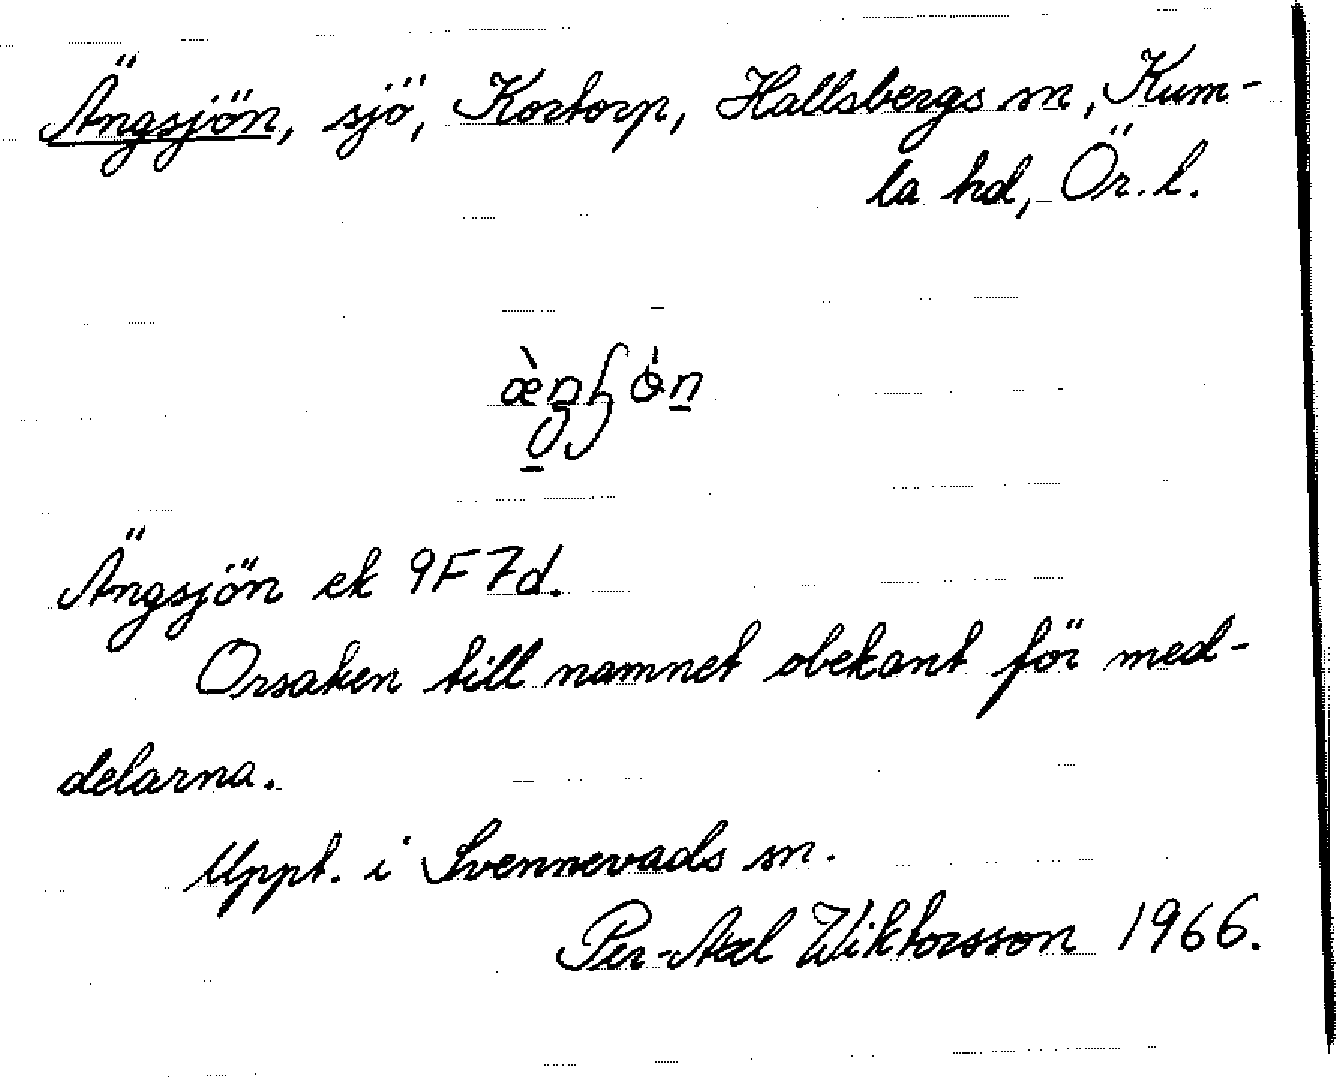 Ängsjön, sjö, Kortorp, Hallsbergs sn, Kum-
la hd, Ör. l.
Ängsjön ek 9F7d.
Orsaken till namnet obekant för med-
delarna.
Uppt. i Svennevads sn.
Per-Axel Wiktorsson 1966.